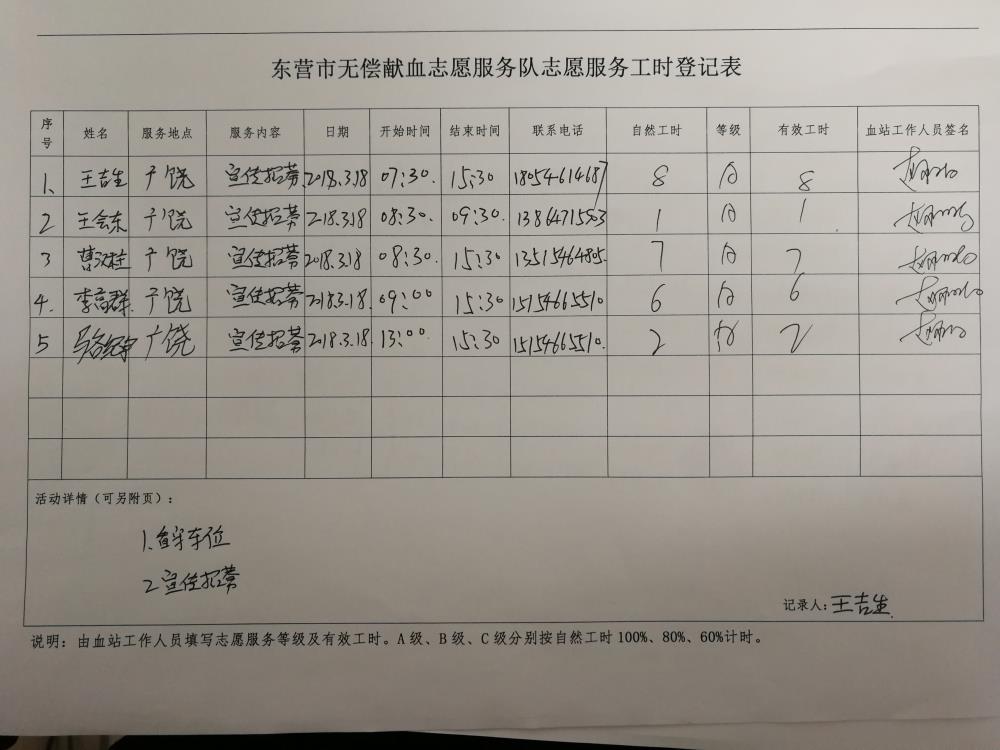 东营市无偿献血志愿服务队志愿服务工时登记表
序号 姓名 服务地点 服务内容 日期 开始时间 结束时间 联系电话 自然工时 等级 有效工时 血站工作人员签名
1、 王吉生 广饶 宣传招募 2018.3.18 07:30. 15:30 18054614687 8 A 8
2 王会东 广饶 宣传招募 2018.3.18 08:30. 09:30. 13864715503 1 A 1
3 广饶 宣传招募 2018.3.18 08:30. 15:30 13515464805. 7 A 7
4. 李高群 广饶 宣传招募 2018.3.18. 09:00 15:30 15154665510 6 A 6
5 广饶 宣传招募 2018.3.18. 13:00. 15:30 15154665510. 2 A 2
活动详情（可另附页）：
1、留守车位
2 宣传招募
记录人：王吉生
说明：由血站工作人员填写志愿服务等级及有效工时。A级、B级、C级分别按自然工时100%、80%、60%计时。